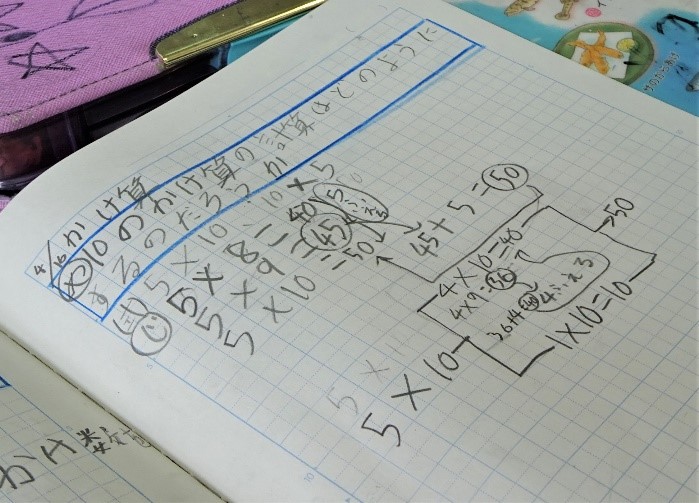 4/16 かけ算
め 10のかけ算の計算はどのように
するのだろうか
式 5×10 10×5
じ 5×8=40
5×9=45 5ふえる
5×10=50
45+5=50
5×10
4×10=40
4×9=36
36+4=40 4ふえる
1×10=10
50
かけ